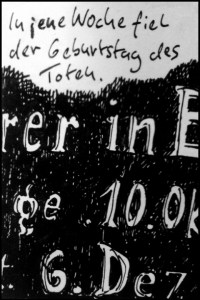 In jene Woche fiel
der Geburtstag des
Toten.
rer in E
ge. 10.Ok
t 6. Dez